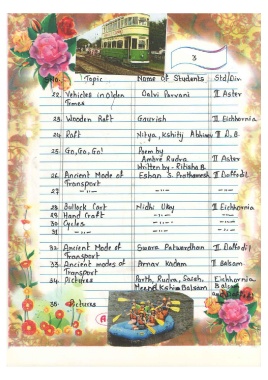 3
S.No. Topic Name Of Students Std/Div.
22. Vehicles in Olden Times Dalvi Parvani II Aster
23. Wooden Raft Gaurish II Eichhornia
24. Raft Nitya, Kshitij Abhinav II D.B.
25. Go, Go, Go! Poem by
Ambre Rudra II Aster
Written by - Ritisha B.
26. Ancient Mode of Transport Eshan S. Prathamesh II Daffodil
27. -"- -"- -"-
28. Bullock Cart Nidhi II Eichhornia
29. Hand Craft -"- -"-
30. Cycles -"- -"-
31. -"- -"- -"-
32. Ancient Mode of Transport Swara Patwardhan II Daffodil
33. Ancient modes of Transport Arnav Kadam II Balsam
34. Pictures Parth, Rudra, Sarah, Eichhornia
Balsam Balsam
35. Pictures
A